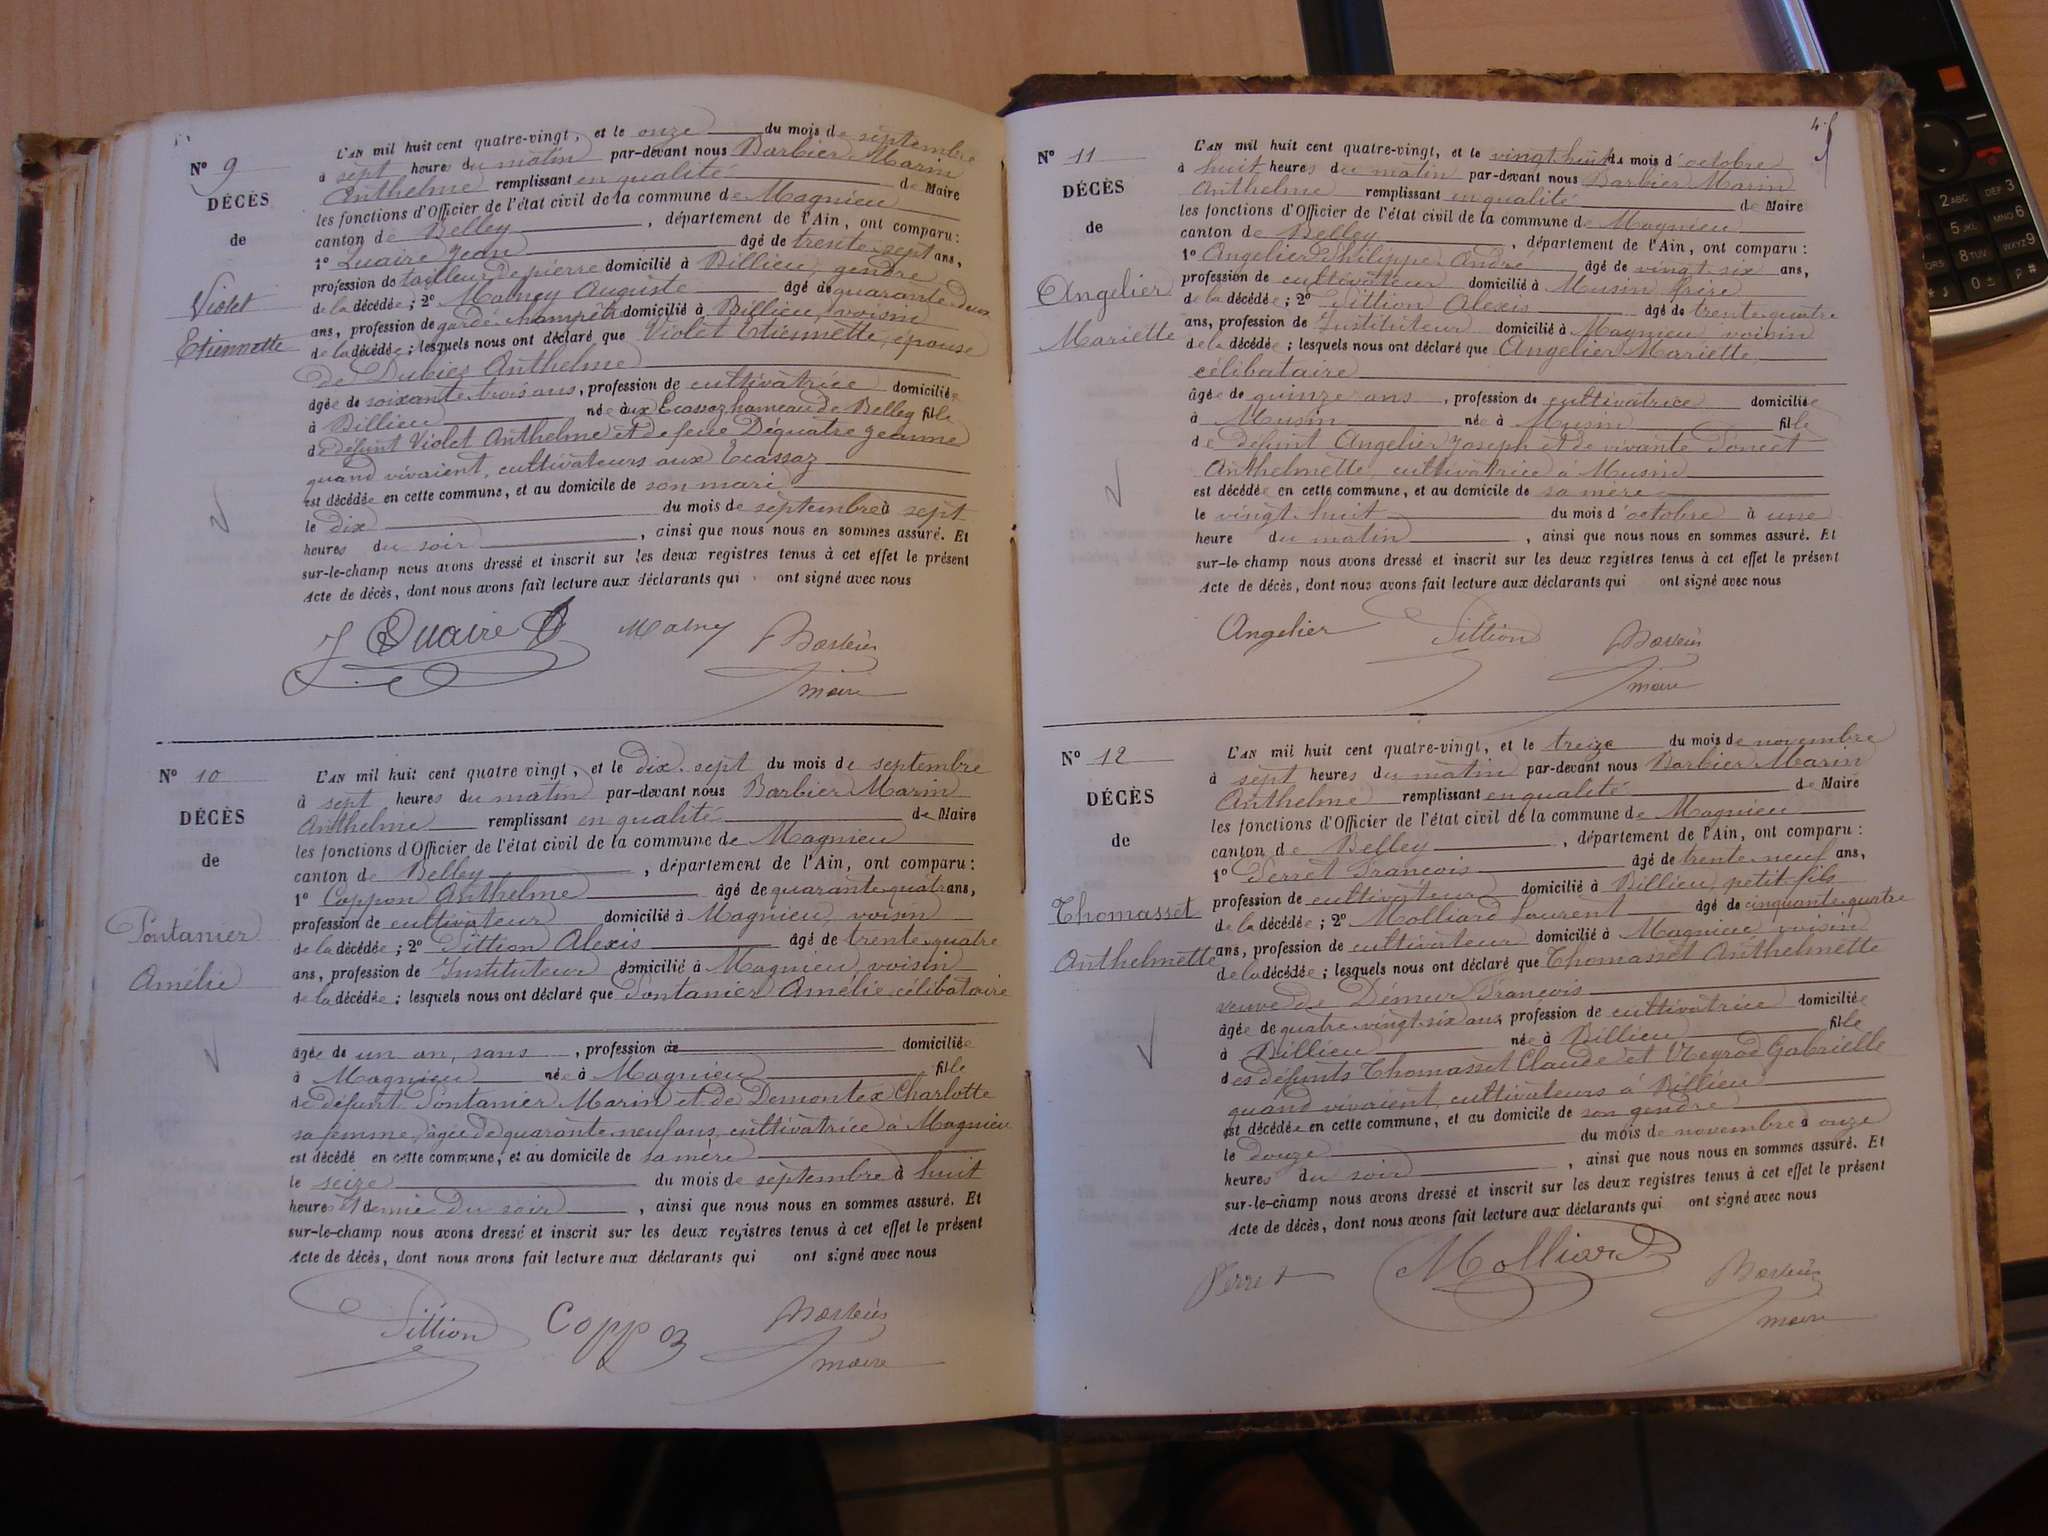 N° 9
DÉCÈS
de
Violet
Etiennette
L'AN mil huit cent quatre-vingt, et le onze du mois de septembre
à sept heures du matin par-devant nous Barbier Marin
Anthelme remplissant en qualité de Maire
les fonctions d'Officier de l'état civil de la commune de Magnieu
canton de Belley, département de l'Ain, ont comparu :
1° Quaire Jean âgé de trente-sept ans,
profession de tailleur de pierre domicilié à Billieu, gendre
de la décédée ; 2° Malney Auguste âgé de quarante-deux
ans, profession de garde champêtre domicilié à Billieu, voisin
de la décédée ; lesquels nous ont déclaré que Violet Etiennette, épouse
de Dubiez Anthelme
âgée de soixante-trois ans, profession de cultivatrice domiciliée
à Billieu née aux Ecassaz hameau de Belley fille
de défunt Violet Anthelme et de feue Déquatre Jeanne
quand vivaient, cultivateurs aux Ecassaz
est décédée en cette commune, et au domicile de son mari
le dix du mois de septembre à sept
heures du soir, ainsi que nous nous en sommes assuré. Et
sur-le-champ nous avons dressé et inscrit sur les deux registres tenus à cet effet le présent
Acte de décès, dont nous avons fait lecture aux déclarants qui ont signé avec nous
J Quaire Malney Barbier
maire
N° 10
DÉCÈS
de
Fontanier
Amélie
L'AN mil huit cent quatre vingt, et le dix-sept du mois de septembre
à sept heures du matin par-devant nous Barbier Marin
Anthelme remplissant en qualité de Maire
les fonctions d'Officier de l'état civil de la commune de Magnieu
canton de Belley, département de l'Ain, ont comparu :
1° Coppon Anthelme âgé de quarante-quatre ans,
profession de cultivateur domicilié à Magnieu, voisin
de la décédée ; 2° Pittion Alexis âgé de trente-quatre
ans, profession de Instituteur domicilié à Magnieu, voisin
de la décédée ; lesquels nous ont déclaré que Fontanier Amélie, célibataire
âgée de un an, sans, profession de domiciliée
à Magnieu née à Magnieu fille
de défunt Fontanier Marin et de Demontex Charlotte
sa femme, âgée de quarante-neuf ans, cultivatrice à Magnieu
est décédé en cette commune, et au domicile de sa mère
le seize du mois de septembre à huit
heures et demie du soir, ainsi que nous nous en sommes assuré. Et
sur-le-champ nous avons dressé et inscrit sur les deux registres tenus à cet effet le présent
Acte de décès, dont nous avons fait lecture aux déclarants qui ont signé avec nous
Pittion Coppon Barbier
maire
N° 11
DÉCÈS
de
Angelier
Mariette
L'AN mil huit cent quatre-vingt, et le vingt-huit du mois d'octobre
à huit heures du matin par-devant nous Barbier Marin
Anthelme remplissant en qualité de Maire
les fonctions d'Officier de l'état civil de la commune de Magnieu
canton de Belley, département de l'Ain, ont comparu :
1° Angelier Philippe André âgé de vingt-six ans,
profession de cultivateur domicilié à Musin, frère
de la décédée ; 2° Pittion Alexis âgé de trente-quatre
ans, profession de Instituteur domicilié à Magnieu, voisin
de la décédée ; lesquels nous ont déclaré que Angelier Mariette,
célibataire
âgée de quinze ans, profession de cultivatrice domiciliée
à Musin née à Musin fille
de défunt Angelier Joseph et de vivante Poncet
Anthelmette, cultivatrice à Musin
est décédée en cette commune, et au domicile de sa mère
le vingt-huit du mois d'octobre à une
heure du matin, ainsi que nous nous en sommes assuré. Et
sur-le champ nous avons dressé et inscrit sur les deux registres tenus à cet effet le présent
Acte de décès, dont nous avons fait lecture aux déclarants qui ont signé avec nous
Angelier Pittion Barbier
maire
N° 12
DÉCÈS
de
Thomasset
Anthelmette
L'AN mil huit cent quatre-vingt, et le treize du mois de novembre
à sept heures du matin par-devant nous Barbier Marin
Anthelme remplissant en qualité de Maire
les fonctions d'Officier de l'état civil de la commune de Magnieu
canton de Belley, département de l'Ain, ont comparu :
1° Perret François âgé de trente-neuf ans,
profession de cultivateur domicilié à Billieu, petit-fils
de la décédée ; 2° Molliard Laurent âgé de cinquante-quatre
ans, profession de cultivateur domicilié à Magnieu, voisin
de la décédée ; lesquels nous ont déclaré que Thomasset Anthelmette
veuve de Démeur François
âgée de quatre-vingt-six ans, profession de cultivatrice domiciliée
à Billieu née à Billieu fille
des défunts Thomasset Claude et Gabrielle
quand vivaient, cultivateurs à Billieu
est décédée en cette commune, et au domicile de son gendre
le douze du mois de novembre à onze
heures du soir, ainsi que nous nous en sommes assuré. Et
sur-le-champ nous avons dressé et inscrit sur les deux registres tenus à cet effet le présent
Acte de décès, dont nous avons fait lecture aux déclarants qui ont signé avec nous
Perret Molliard Barbier
maire